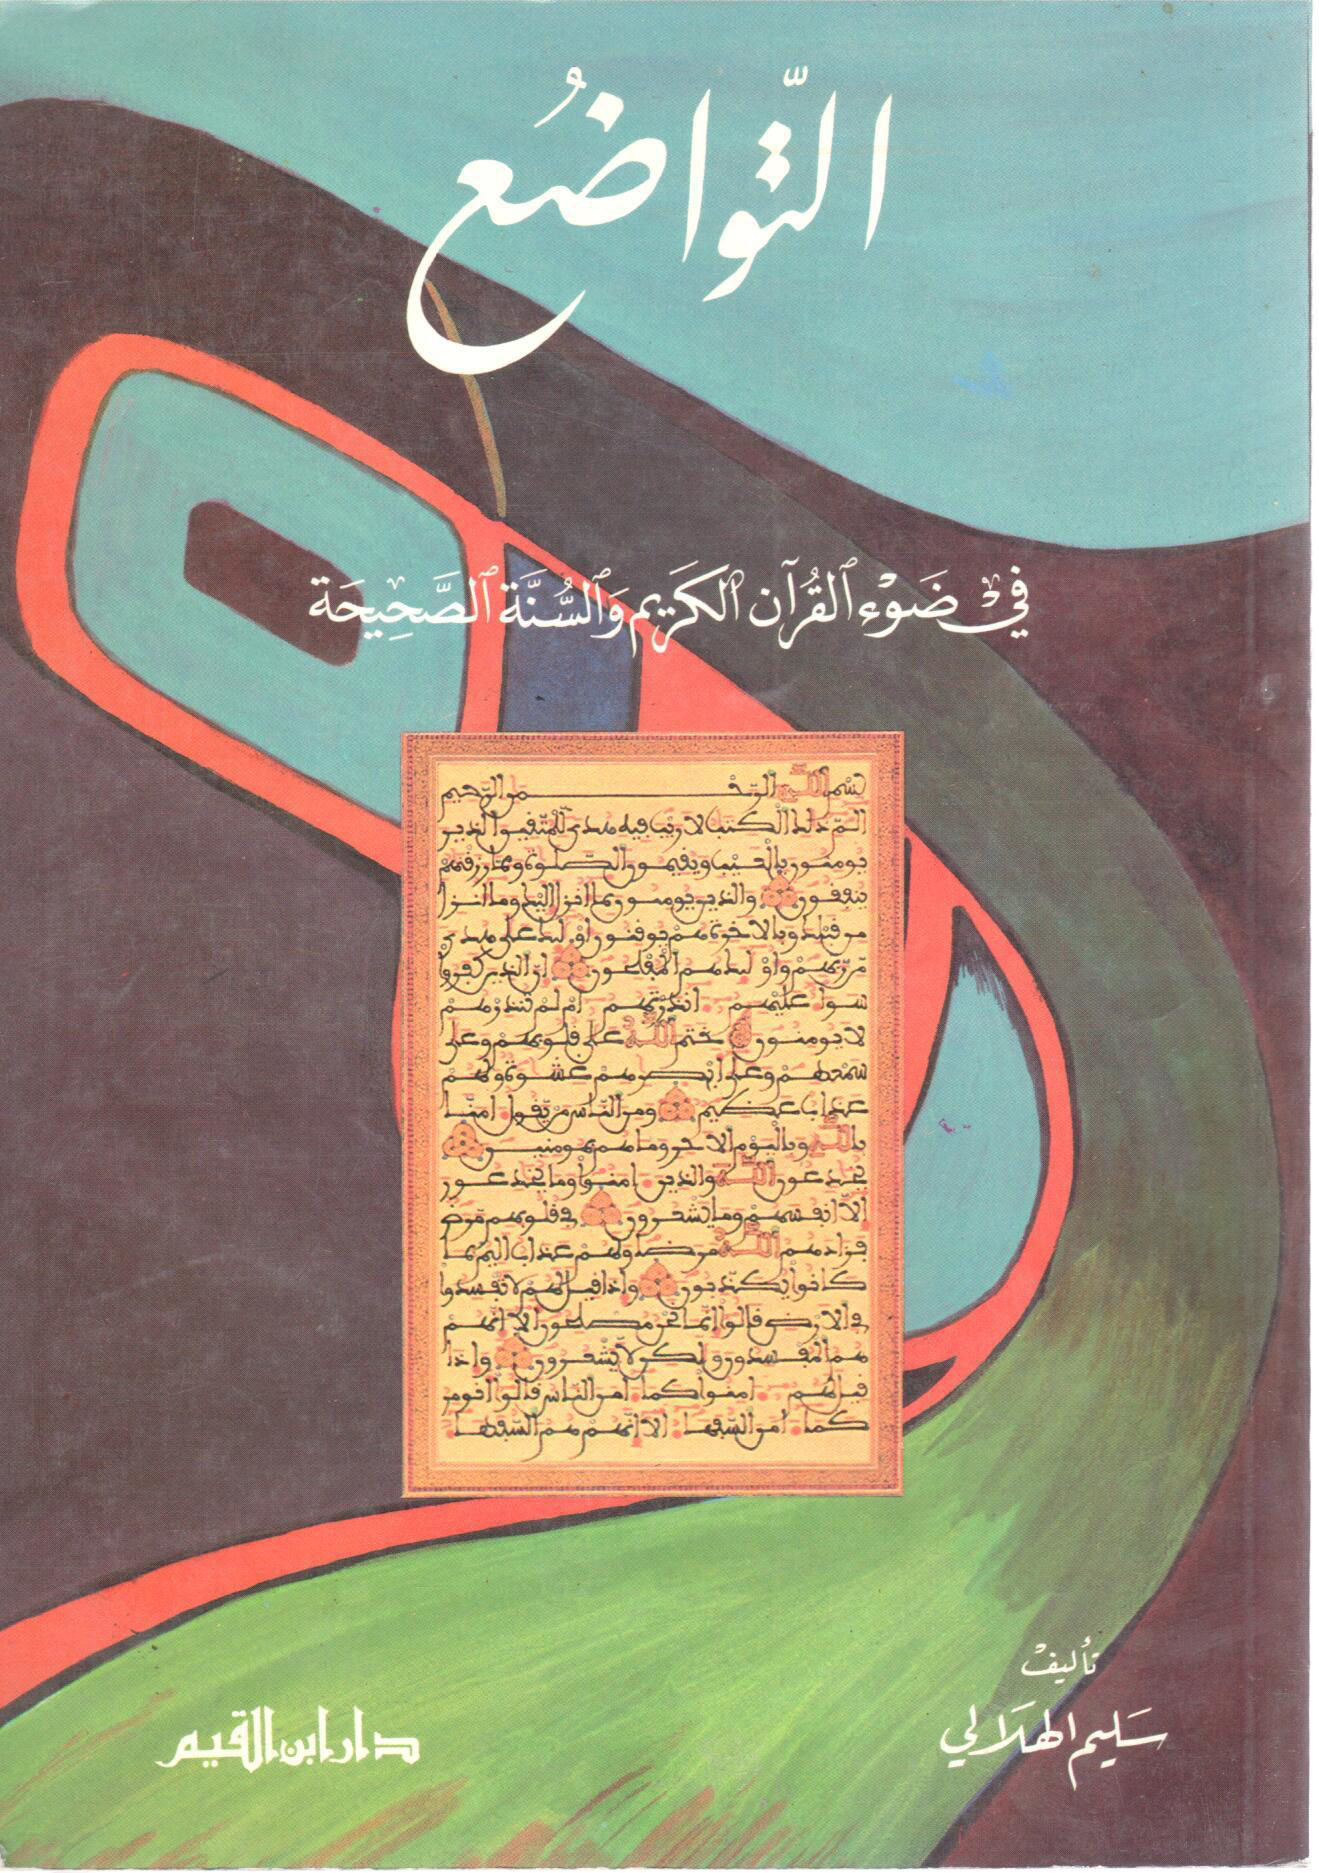 التّواضُع
في ضَوْءِ ٱلقُرآن ٱلكَرِيم وَٱلسُّنَّة ٱلصَّحِيحَة
بسم الله الرحمن الرحيم
الم ذلك الكتب لا ريب فيه هدى للمتقين الذين
يومنون بالغيب ويقيمون الصلوة ومما رزقنهم
ينفقون والذين يومنون بما انزل اليك وما انزل
من قبلك وبالاخرة هم يوقنون اولئك على هدى
من ربهم واولئك هم المفلحون ان الذين كفروا
سواء عليهم ءانذرتهم ام لم تنذرهم
لا يومنون ختم الله على قلوبهم وعلى
سمعهم وعلى ابصرهم غشوة ولهم
عذاب عظيم ومن الناس من يقول امنا
بالله وباليوم الاخر وما هم بمومنين
يخدعون الله والذين امنوا وما يخدعون
الا انفسهم وما يشعرون في قلوبهم مرض
فزادهم الله مرضا ولهم عذاب اليم بما
كانوا يكذبون واذا قيل لهم لا تفسدوا
في الارض قالوا انما نحن مصلحون الا انهم
هم المفسدون ولكن لا يشعرون واذا
قيل لهم امنوا كما امن الناس قالوا انومن
كما امن السفهاء الا انهم هم السفهاء
تأليف
سَليم الهلَالي
دار ابن القيم